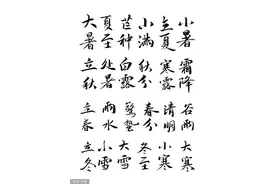 大暑 夏至 芒种 小满 立夏 小暑
立秋 处暑 白露 秋分 寒露 霜降
立春 雨水 驚蛰 春分 清明 谷雨
立冬 小雪 大雪 冬至 小寒 大寒